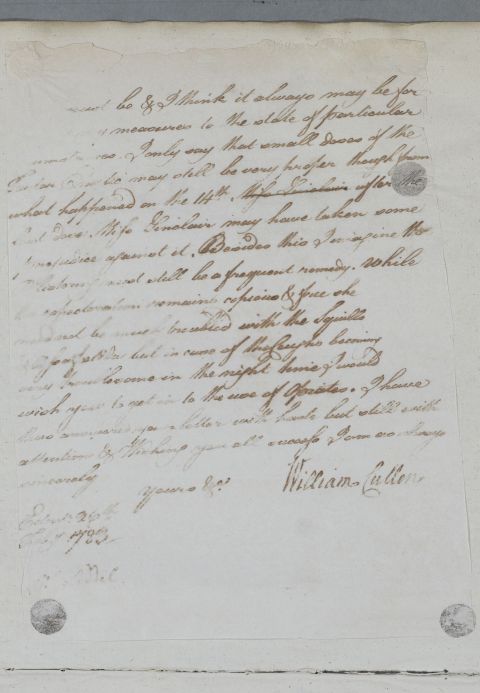 must be & I think it always may be for
measures to the state of particular
I only say that small doses of the
Tartar Emetic may still be very proper though from
what happened on the 14th Miss Sinclair after the
last dose Miss Sinclair may have taken some
prejudice against it. Besides this I imagine the
must still be a frequent remedy. While
the expectoration remains copious & free she
need not be much troubled with the Squills
or Asafoetida but in case of the Cough becoming
very troublesome in the night time I would
wish you to get in to the use of Opiates. I have
thus answered your letter with haste but still with
attention & Wishing you all success I am as always
sincerely
Yours &c
William Cullen
Edinr. 26th
1782